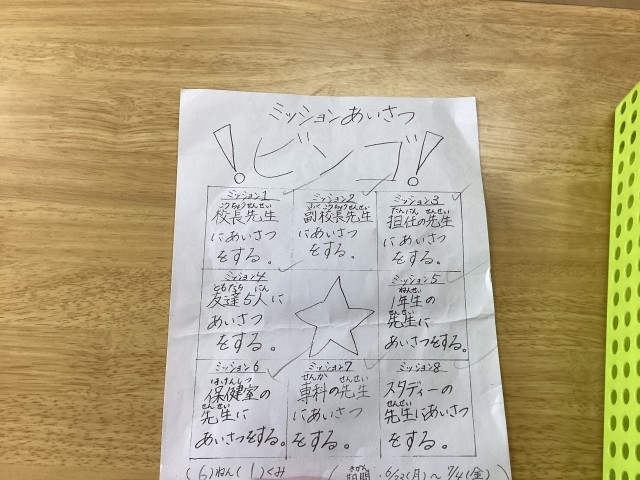 ミッションあいさつ
!ビンゴ!
ミッション1
こうちょうせんせい
校長先生
にあいさつ
をする。
ミッション2
ふくこうちょうせんせい
副校長先生
にあいさつ
をする。
ミッション3
たんにん せんせい
担任の先生
にあいさつ
をする。
ミッション4
ともだち にん
友達5人に
あいさつ
をする。
ミッション5
ねんせい
1年生の
せんせい
先生に
あいさつをする。
ミッション6
ほけんしつ
保健室の
せんせい
先生に
あいさつをする。
ミッション7
せんか せんせい
専科の先生
にあいさつ
をする。
ミッション8
スタディーの
せんせい
先生にあいさつ
をする。
(6)ねん(1)くみ
(期間:6/23(月)～7/4(金)